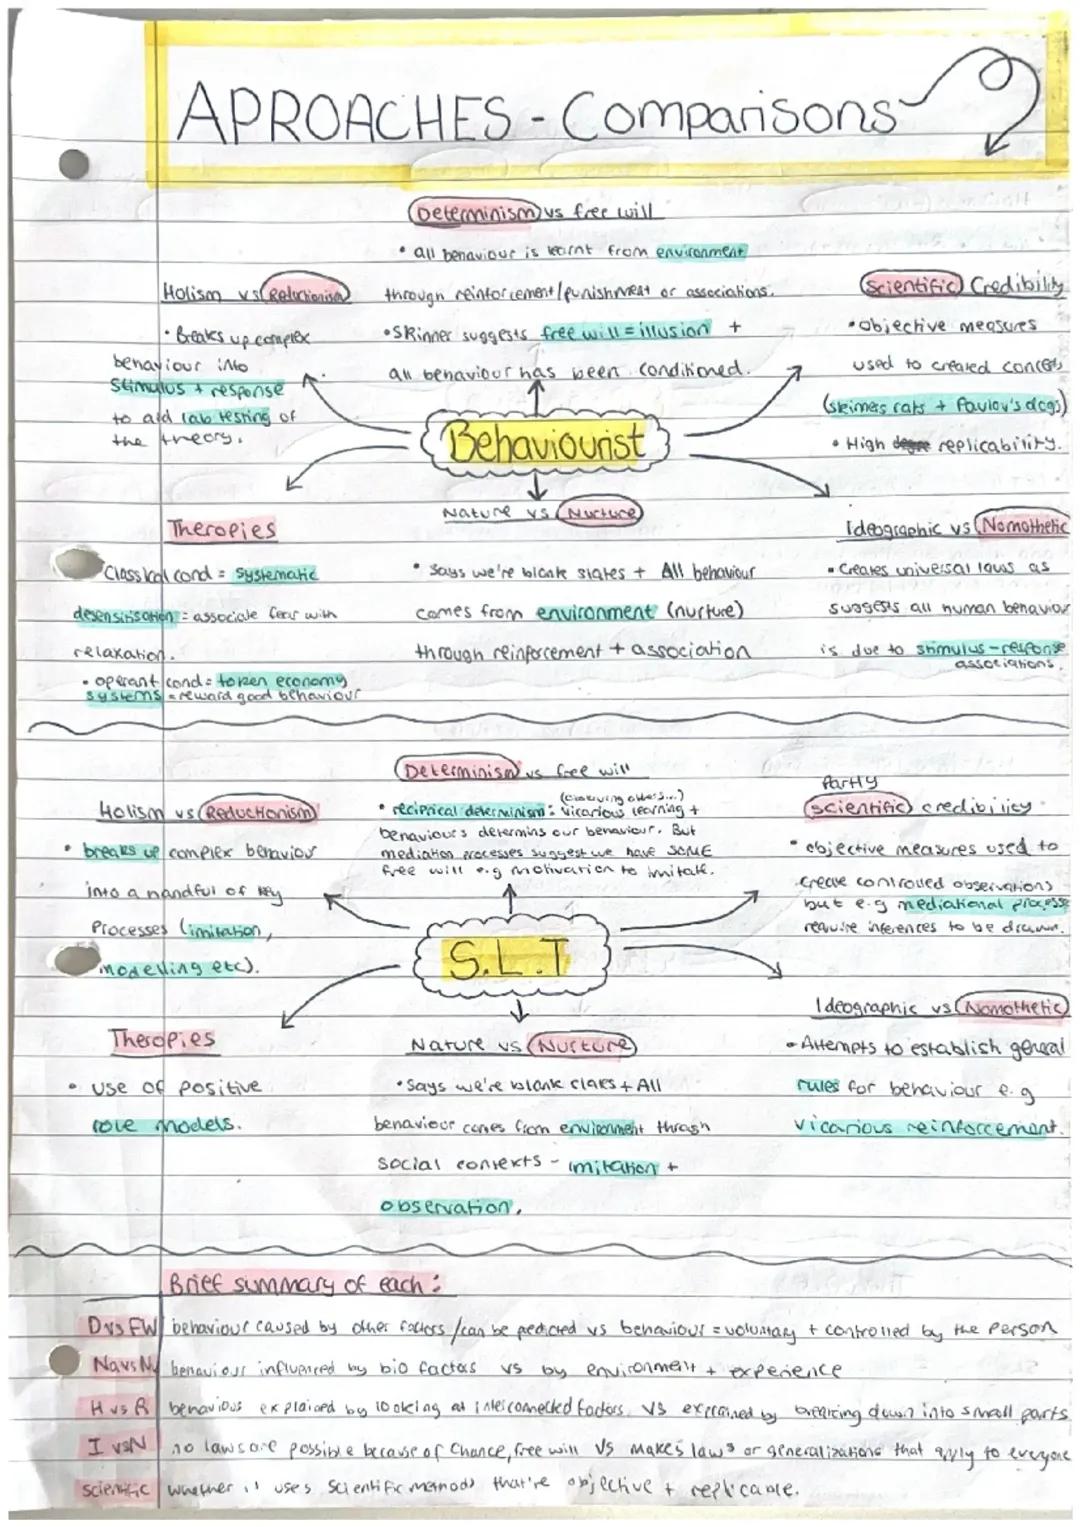 APROACHES - Comparisons
Determinism vs free will
• all behaviour is learnt from environment
through reinforcement/punishment or associations.
• Skinner suggests free will = illusion +
all behaviour has been conditioned.
Holism vs Reductionism
• Breaks up complex
behaviour into
Stimulus + response
to aid lab testing of
the theory.
Scientific Credibility
• Objective measures
used to created
(skinners rats + Pavlov's dogs)
• High replicability.
Behaviourist
Therapies
Classical cond = systematic
desensitisation = associate fear with
relaxation.
• operant cond = token economy
systems = reward good behaviour
Nature vs Nurture
• Says we're blank slates + All behaviour
comes from environment (nurture)
through reinforcement + association
Ideographic vs Nomothetic
• Creates universal laws as
suggests all human behaviour
is due to stimulus-response
associations.
Determinism vs free will
(observing others...)
• reciprical determinism: vicarious learning +
behaviours determins our behaviour. But
mediation processes suggest we have SOME
free will e.g motivation to imitate.
Holism vs Reductionism
• breaks up complex behaviour
into a handful of key
Processes (imitation,
modelling etc).
Partly
scientific credibility
• objective measures used to
create controlled observations
but e.g mediational processes
require inferences to be drawn.
S.L.T
Therapies
• use of positive
role models.
Nature vs Nurture
• Says we're blank slates + All
behaviour comes from environment through
social contexts - imitation +
observation.
Ideographic vs Nomothetic
• Attempts to establish general
rules for behaviour e.g
vicarious reinforcement.
Brief summary of each:
D vs FW behaviour caused by other factors /can be predicted vs behaviour = voluntary + controlled by the person
Na vs Nu behaviour influenced by bio factors vs by environment + experience
H vs R behaviour explained by looking at interconnected factors vs explained by breaking down into small parts
I vs N no laws are possible because of chance, free will vs makes laws or generalizations that apply to everyone
scientific whether it uses scientific methods that're objective + replicable.